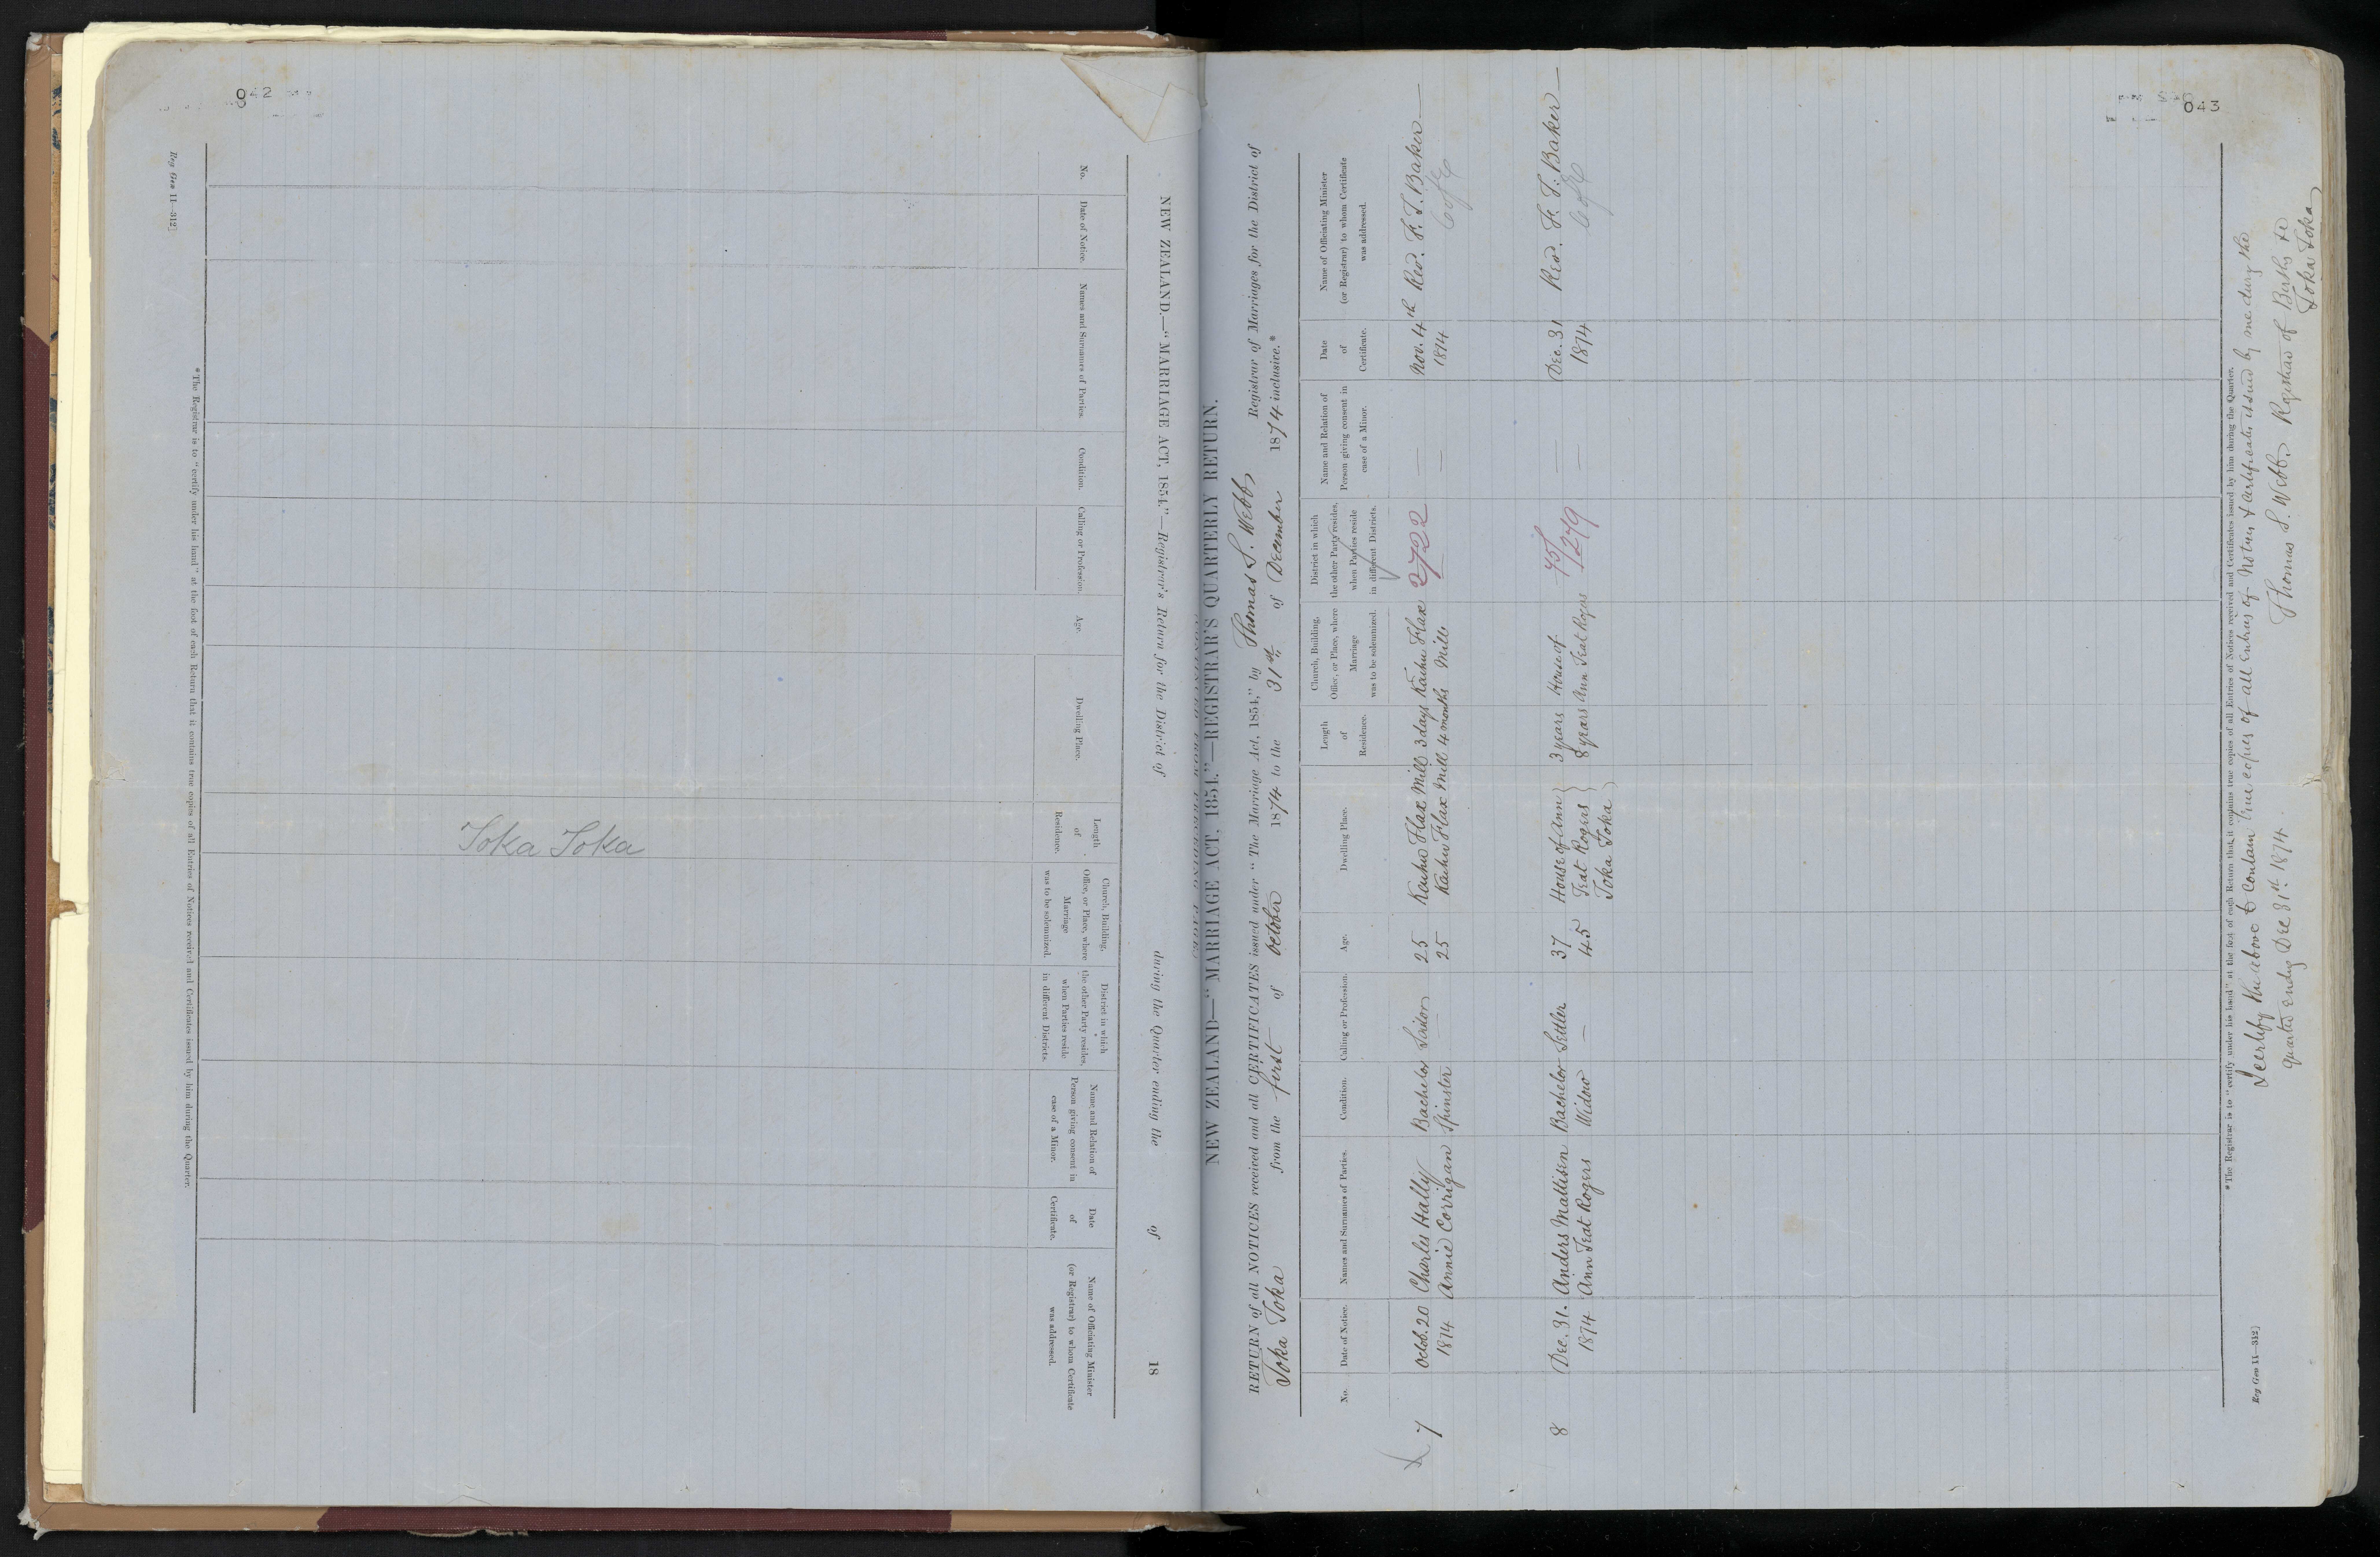 042
Reg Gen 11—312]
NEW ZEALAND.—"MARRIAGE ACT, 1854."—Registrar's Return for the District of
during the Quarter ending the of 18
No.
Date of Notice.
Names and Surnames of Parties.
Condition.
Calling or Profession.
Age.
Dwelling Place.
Length
of
Residence.
Church, Building,
Office, or Place, where
Marriage
was to be solemnized.
District in which
the other Party resides,
when Parties reside
in different Districts.
Name and Relation of
Person giving consent in
case of a Minor.
Date
of
Certificate.
Name of Officiating Minister
(or Registrar) to whom Certificate
was addressed.
Toka Toka
*The Registrar is to "certify under his hand" at the foot of each Return that it contains true copies of all Entries of Notices received and Certificates issued by him during the Quarter.
043
NEW ZEALAND—"MARRIAGE ACT, 1854."—REGISTRAR'S QUARTERLY RETURN.
RETURN of all NOTICES received and all CERTIFICATES issued under "The Marriage Act, 1854," by Thomas S. Webb Registrar of Marriages for the District of
Toka Toka from the first of October 1874 to the 31st of December 1874 inclusive.*
No.
Date of Notice.
Names and Surnames of Parties.
Condition.
Calling or Profession.
Age.
Dwelling Place.
Length
of
Residence.
Church, Building,
Office, or Place, where
Marriage
was to be solemnized.
District in which
the other Party resides,
when Parties reside
in different Districts.
Name and Relation of
Person giving consent in
case of a Minor.
Date
of
Certificate.
Name of Officiating Minister
(or Registrar) to whom Certificate
was addressed.
7 Octob. 20 Charles Hally Bachelor 25 Kaihu Flax Mill 3 days Kaihu Flax 2722 — Nov. 4th Rev. F. T. Baker —
1874 Annie Corrigan Spinster — 25 Kaihu Flax Mill 4 months Mill — 1874 C of E
8 Dec. 31. Anders Mattisen Bachelor Settler 37 House of Ann 3 years House of 75/ — Dec. 31 Rev. F. T. Baker —
1874 Ann Teat Rogers Widow — 45 Teat Rogers 8 years Ann Teat Rogers 1279 — 1874 C of E
Toka Toka
*The Registrar is to "certify under his hand" at the foot of each Return that it contains true copies of all Entries of Notices received and Certificates issued by him during the Quarter.
Reg Gen 11—312]
I certify the above to contain true copies of all entries of Notices & Certificates issued by me during the
quarter ending Dec 31st. 1874.
Thomas S. Webb Registrar of Births &c
Toka Toka